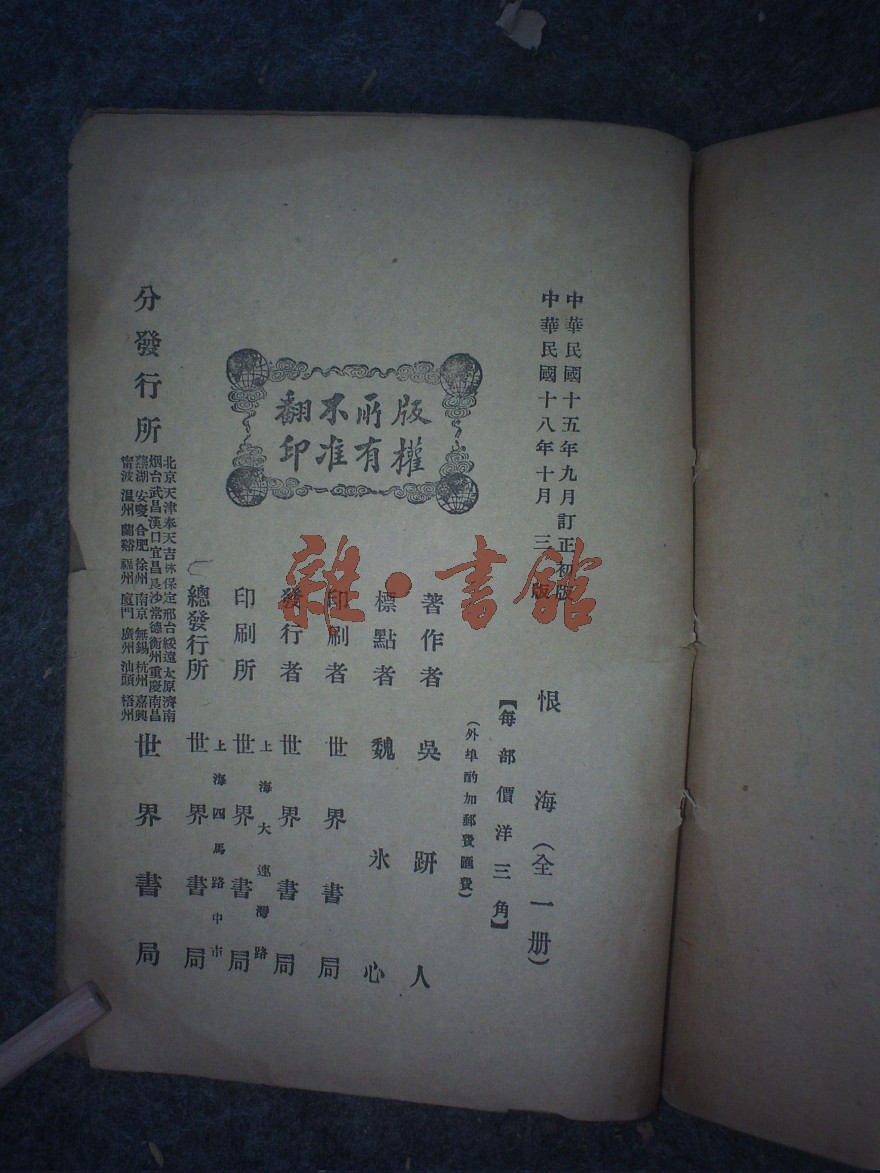 中華民國十五年九月訂正初版
中華民國十八年十月三版
恨海(全一册)
【每部價洋三角】
(外埠酌加郵費匯費)
著作者 吳趼人
標點者 魏氷心
印刷者 世界書局
發行者 世界書局
上海大連灣路
印刷所 世界書局
上海四馬路中市
總發行所 世界書局
版權
所有
不准
翻印
北京天津奉天吉林保定邢台綏遠太原濟南
烟台武昌漢口宜昌長沙常德衡州重慶南昌
蕪湖安慶合肥徐州南京無錫杭州嘉興
甯波溫州蘭谿福州廈門廣州汕頭梧州
分發行所 世界書局
雜·書館